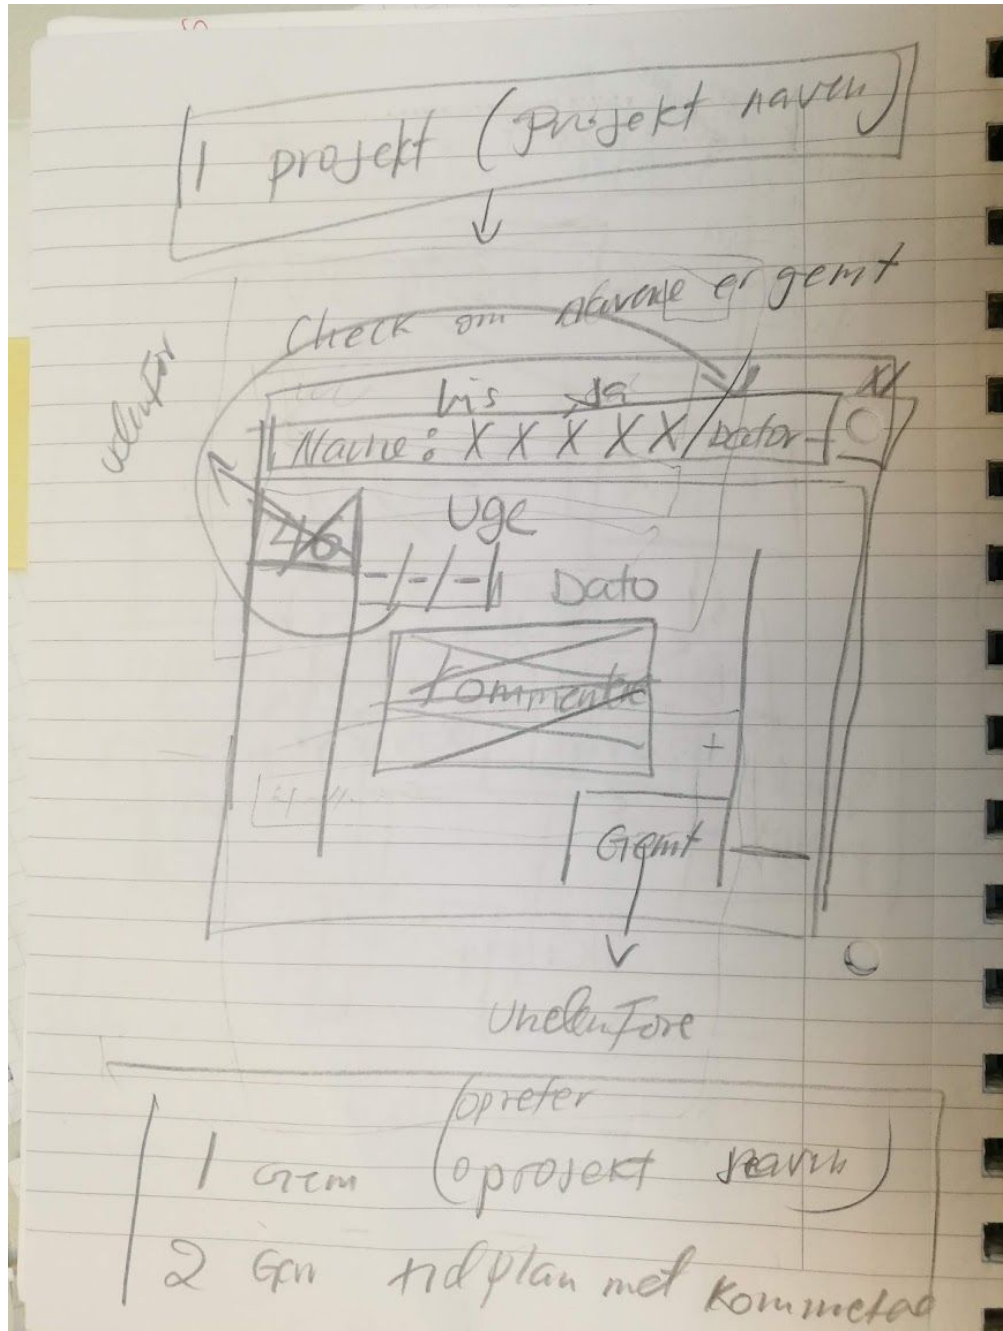 1 projekt (Projekt naven)
Check om navene er gemt
his ja
Navne: X X X X X / Dator
46 Uge
-/-/- Dato
Kommentar
+
Gemt
1 Gem (opreter projekt navn)
2 Gem tidplan met Kommetae